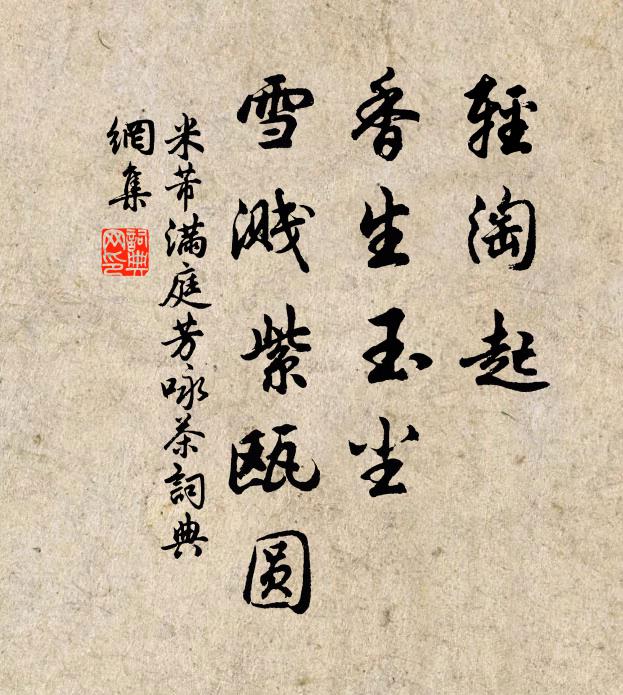 輕淘起
香生玉尘
雪溅紫瓯圆
米芾满庭芳咏茶詞典
網集
詞典
网印